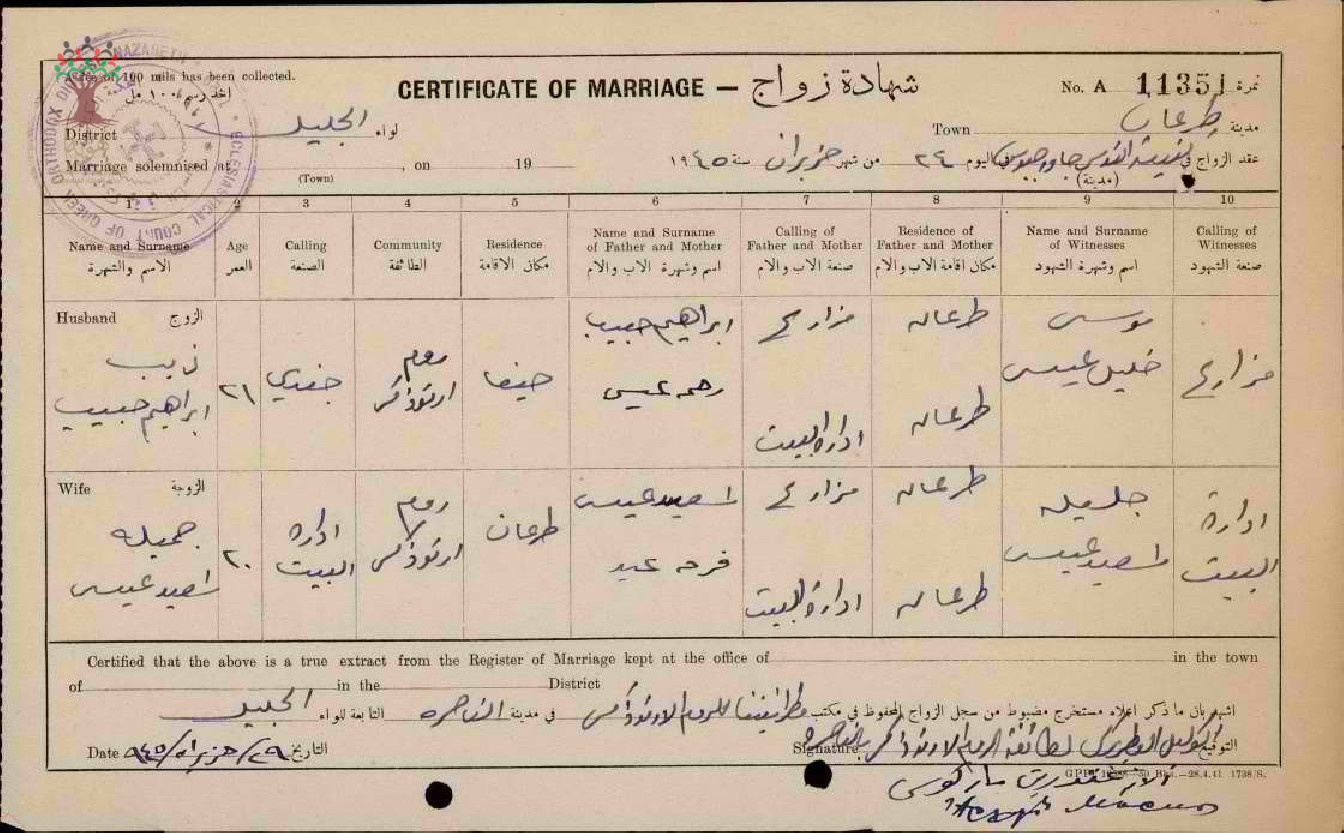 A fee of 100 mils has been collected.
CERTIFICATE OF MARRIAGE — شهادة زواج
No. A 11351 نمرة
District الجليل لواء
Town طرعان مدينة
Marriage solemnised at (Town) , on 19
عقد الزواج في (مدينة) في اليوم ٢٤ من شهر حزيران سنة ١٩٤٥
1 2 3 4 5 6 7 8 9 10
Name and Surname الاسم والشهرة
Age العمر
Calling الصنعة
Community الطائفة
Residence مكان الاقامة
Name and Surname of Father and Mother اسم وشهرة الاب والام
Calling of Father and Mother صنعة الاب والام
Residence of Father and Mother مكان اقامة الاب والام
Name and Surname of Witnesses اسم وشهرة الشهود
Calling of Witnesses صنعة الشهود
Husband الزوج
ذيب
ابراهيم حبيب
٢٦
جندي
روم
ارثوذكس
حيفا
ابراهيم حبيب
رحمه عيسى
مزارع
ادارة البيت
طرعان
طرعان
موسى
خليل عيسى
مزارع
Wife الزوجة
جميله
اسعيد عيسى
٢٠
ادارة
البيت
روم
ارثوذكس
طرعان
اسعيد عيسى
فرحه عيد
مزارع
ادارة البيت
طرعان
طرعان
جليله
اسعيد عيسى
ادارة
البيت
Certified that the above is a true extract from the Register of Marriage kept at the office of in the town
of in the District
اشهد بان ما ذكر اعلاه مستخرج مضبوط من سجل الزواج المحفوظ في مكتب مطرانيتنا للروم الارثوذكس في مدينة الناصره التابعة للواء الجليل
Date ٢٩/حزيران/٩٤٥ التاريخ
Signature لطائفة الروم الارثوذكس بالناصره التوقيع
NAZARETH
ECCLESIASTICAL COURT OF GREEK ORTHODOX